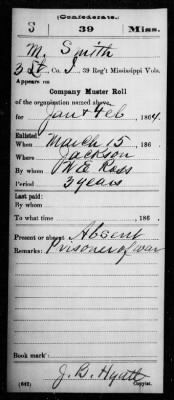 (Confederate.)
S 39 Miss.
M. Smith
Co. 39 Reg't Mississippi Vols.
Appears on
Company Muster Roll
of the organization named above,
for Jan & Feb, 1864.
Enlisted:
When March 15, 186 .
Where Jackson
By whom W E Ross
Period 3 years
Last paid:
By whom
To what time , 186 .
Present or absent Absent
Remarks: Prisoner of war
Book mark:
(642) J. B. Hyatt
Copyist.